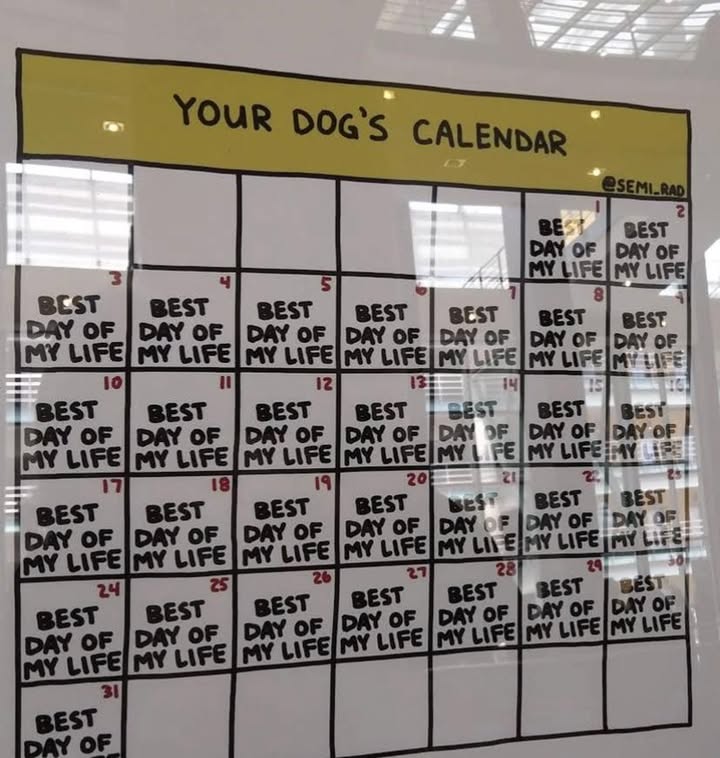 YOUR DOG'S CALENDAR
@SEMI_RAD
1
BEST
DAY OF
MY LIFE
2
BEST
DAY OF
MY LIFE
3
BEST
DAY OF
MY LIFE
4
BEST
DAY OF
MY LIFE
5
BEST
DAY OF
MY LIFE
6
BEST
DAY OF
MY LIFE
7
BEST
DAY OF
MY LIFE
8
BEST
DAY OF
MY LIFE
9
BEST
DAY OF
MY LIFE
10
BEST
DAY OF
MY LIFE
11
BEST
DAY OF
MY LIFE
12
BEST
DAY OF
MY LIFE
13
BEST
DAY OF
MY LIFE
14
BEST
DAY OF
MY LIFE
15
BEST
DAY OF
MY LIFE
16
BEST
DAY OF
MY LIFE
17
BEST
DAY OF
MY LIFE
18
BEST
DAY OF
MY LIFE
19
BEST
DAY OF
MY LIFE
20
BEST
DAY OF
MY LIFE
21
BEST
DAY OF
MY LIFE
22
BEST
DAY OF
MY LIFE
23
BEST
DAY OF
MY LIFE
24
BEST
DAY OF
MY LIFE
25
BEST
DAY OF
MY LIFE
26
BEST
DAY OF
MY LIFE
27
BEST
DAY OF
MY LIFE
28
BEST
DAY OF
MY LIFE
29
BEST
DAY OF
MY LIFE
30
BEST
DAY OF
MY LIFE
31
BEST
DAY OF